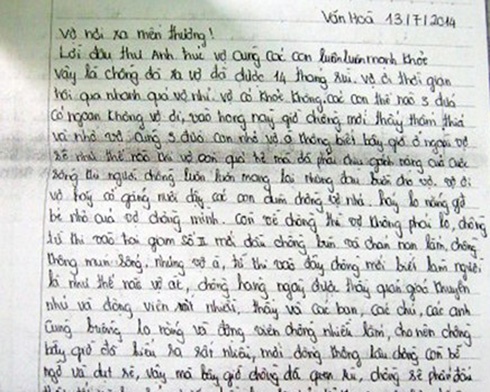 Văn Hoá 13/7/2014
Vợ nơi xa mến thương!
Lời đầu thư Anh chúc vợ cùng các con luôn luôn mạnh khỏe
vậy là chồng đã xa vợ đã được 14 tháng rùi. vợ ơi thời gian
trôi qua nhanh quá vợ nhỉ. vợ có khỏe không, các con thế nào 3 đứa
có ngoan không vợ ơi, vào trong này giờ chồng mới thấy thấm thía
và nhớ vợ cùng 3 đứa con nhỏ vợ ạ không biết bây giờ ở ngoài vợ
sẽ như thế nào khi vợ còn quá trẻ mà đã phải chịu gánh nặng của cuộc
sống khi người chồng luôn luôn mang lại những đau buồn cho vợ. vợ ơi
vợ hãy cố gắng nuôi dậy các con dùm chồng vợ nhé. hãy lo nắng giờ
bé nhỏ của vợ chồng mình. còn về chồng thì vợ không phải lo, chồng
từ khi vào trại giam số II mới đầu chồng buồn và chán nản lắm, chồng
không muốn sống, nhưng vợ ạ, từ khi vào đây chồng mới biết làm người
là như thế nào vợ ạ, chồng hàng ngày được thầy quản giáo khuyên
nhủ và động viên rất nhiều, thầy và các bạn, các chú, các anh
cùng buồng lo lắng và động viên chồng nhiều lắm, cho nên chồng
bây giờ đã hiểu ra rất nhiều, mới đông thông lâu chồng còn bỡ
ngỡ và dụt rè, vậy mà bây giờ chồng đã quen rùi, chồng sẽ phấn đấu